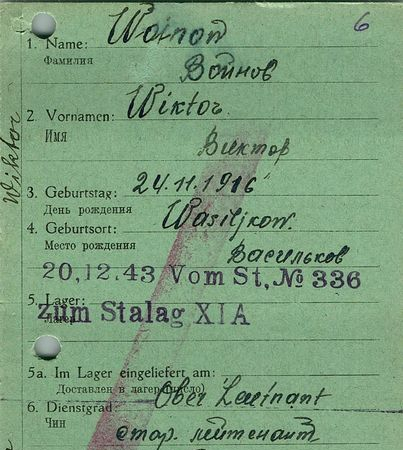 6
1. Name: Woinow
Фамилия
Воинов
2. Vornamen: Wiktor.
Имя
Виктор
Wiktor
3. Geburtstag: 24.11.1916
День рождения
4. Geburtsort: Wasiljkow.
Место рождения
Васильков
20.12.43 Vom St, № 336
5. Lager:
Zum Stalag XIA
Лагер
5a. Im Lager eingeliefert am:
Доставлен в лагер (число)
6. Dienstgrad: Ober Leutnant
Чин
стар. лейтенант